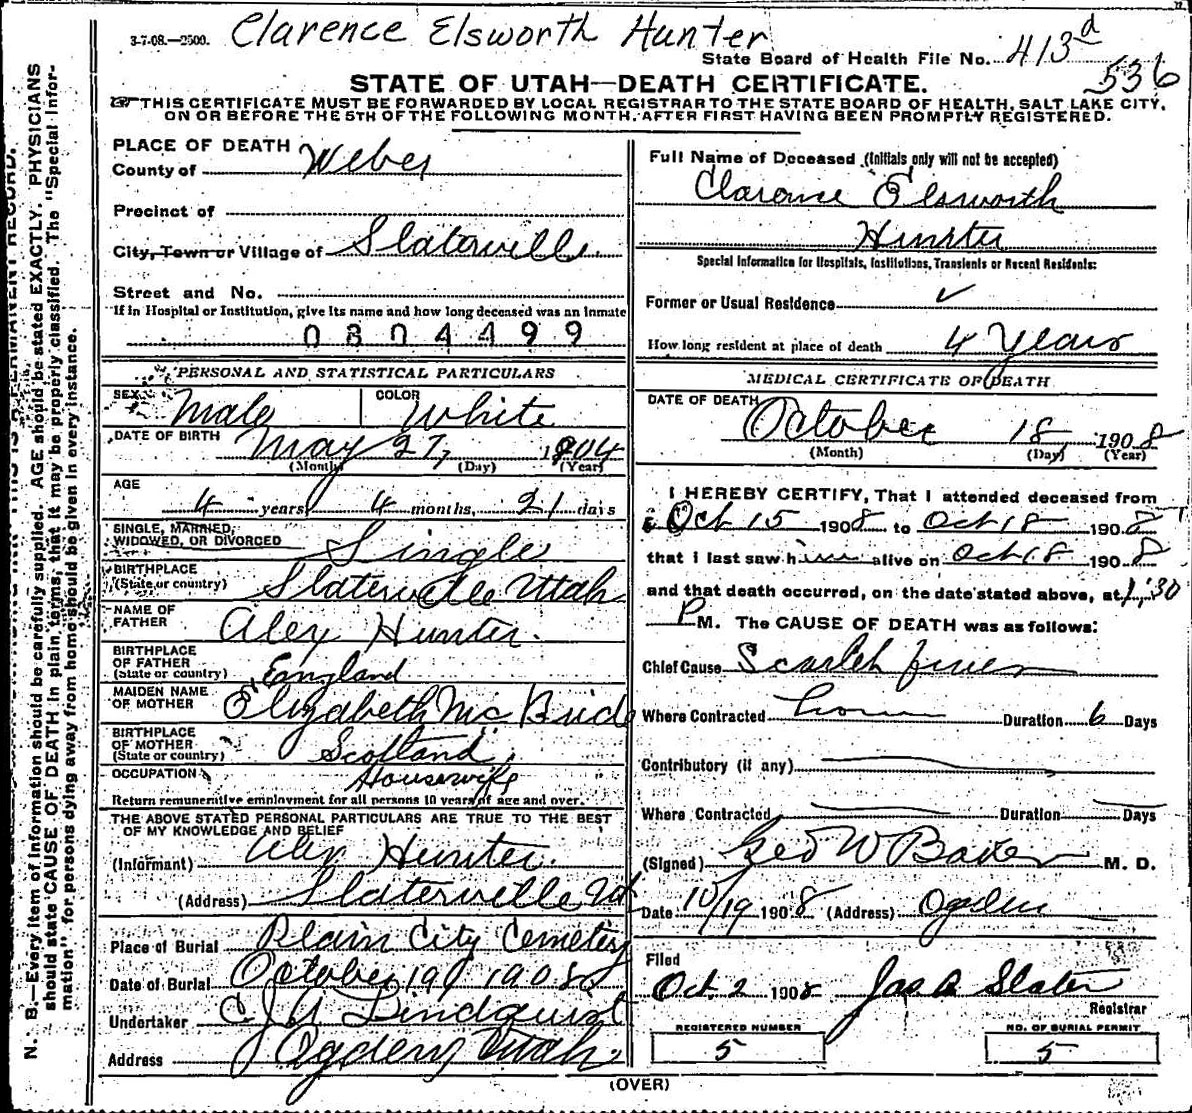 3-7-08.—2500. Clarence Elsworth Hunter
State Board of Health File No. 413d
536
STATE OF UTAH—DEATH CERTIFICATE.
THIS CERTIFICATE MUST BE FORWARDED BY LOCAL REGISTRAR TO THE STATE BOARD OF HEALTH, SALT LAKE CITY,
ON OR BEFORE THE 5TH OF THE FOLLOWING MONTH, AFTER FIRST HAVING BEEN PROMPTLY REGISTERED.
PLACE OF DEATH
County of Weber
Precinct of
City, Town or Village of Slaterville
Street and No.
If in Hospital or Institution, give its name and how long deceased was an inmate
0804499
PERSONAL AND STATISTICAL PARTICULARS
SEX Male COLOR White
DATE OF BIRTH May 27, 1904
(Month) (Day) (Year)
AGE
4 years 4 months, 21 days
SINGLE, MARRIED,
WIDOWED, OR DIVORCED Single
BIRTHPLACE
(State or country) Slaterville Utah
NAME OF
FATHER Alex Hunter.
BIRTHPLACE
OF FATHER
(State or country) England
MAIDEN NAME
OF MOTHER Elizabeth McBride
BIRTHPLACE
OF MOTHER
(State or country) Scotland
OCCUPATION Housewife
Return remunerative employment for all persons 10 years of age and over.
THE ABOVE STATED PERSONAL PARTICULARS ARE TRUE TO THE BEST
OF MY KNOWLEDGE AND BELIEF
(Informant) Alex Hunter.
(Address) Slaterville Ut
Place of Burial Plain City Cemetery
Date of Burial October 19, 1908
Undertaker C J A Lindquist
Address Ogden, Utah
Full Name of Deceased (Initials only will not be accepted)
Clarence Elsworth
Hunter
Special Information for Hospitals, Institutions, Transients or Recent Residents:
Former or Usual Residence ✓
How long resident at place of death 4 Years
MEDICAL CERTIFICATE OF DEATH
DATE OF DEATH
October 18, 1908
(Month) (Day) (Year)
I HEREBY CERTIFY, That I attended deceased from
Oct 15 1908 to Oct 18 1908
that I last saw him alive on Oct 18 1908
and that death occurred, on the date stated above, at 1:30
P M. The CAUSE OF DEATH was as follows:
Chief Cause Scarlet fever
Where Contracted home Duration 6 Days
Contributory (if any)
Where Contracted Duration Days
(Signed) Geo W Baker M. D.
Date 10/19 1908 (Address) Ogden
Filed
Oct. 2 1908 Jas A Slater
Registrar
REGISTERED NUMBER
5
NO. OF BURIAL PERMIT
5
(OVER)
N. B.—Every item of information should be carefully supplied. AGE should be stated EXACTLY. PHYSICIANS
should state CAUSE OF DEATH in plain terms, that it may be properly classified. The "Special Infor-
mation" for persons dying away from home should be given in every instance.